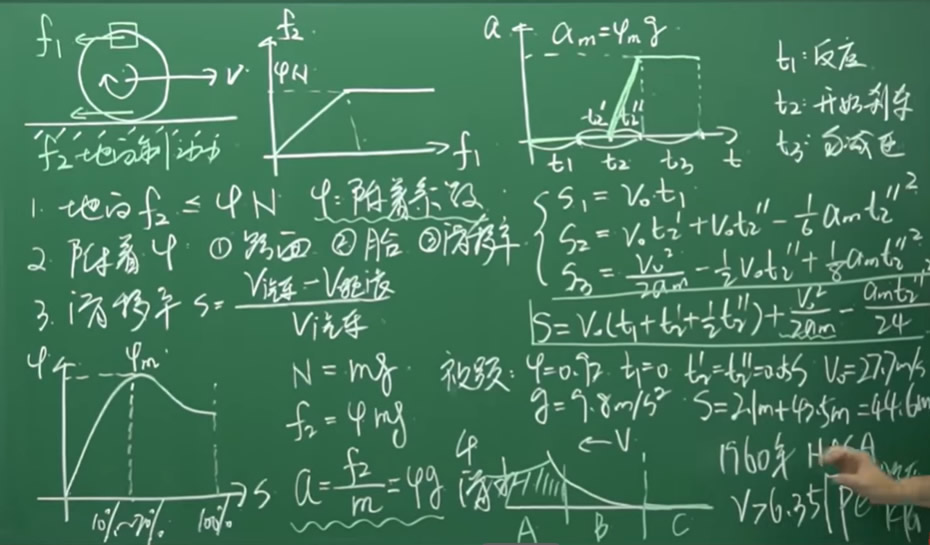 f₁
V
f₂ 地面制动力
f₂
φN
f₁
a
aₘ=φₘg
t₂' t₂''
t₁ t₂ t₃ t
t₁: 反应
t₂: 开始刹车
t₃:
1. 地面 f₂ ≤ φN φ: 附着系数
2. 附着φ ①路面 ②胎 ③滑移率
3. 滑移率 S= (V汽车-V轮胎)/V汽车
S₁=V₀t₁
S₂=V₀t₂'+V₀t₂''-1/6 aₘt₂''²
S₃=V₀²/2aₘ-1/2 V₀t₂''+1/8 aₘt₂''²
S=V₀(t₁+t₂'+1/2 t₂'')+V₀²/2aₘ-aₘt₂''²/24
φ
φₘ
S
10%~20% 100%
N=mg
f₂=φmg
a=f₂/m=φg
视频: t₁=0 V₀=27.7m/s
g=9.8m/s² =44.6m
φ
←V
A B C
1960年
V>6.35